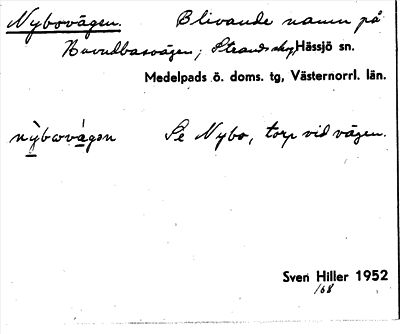 Nybovägen. Blivande namn på
Huvudbasvägen; Strandskog, Hässjö sn.
Medelpads ö. doms. tg, Västernorrl. län.
nỳbωvá̀gən Se Nybo, torp vid vägen.
Sven Hiller 1952
/68